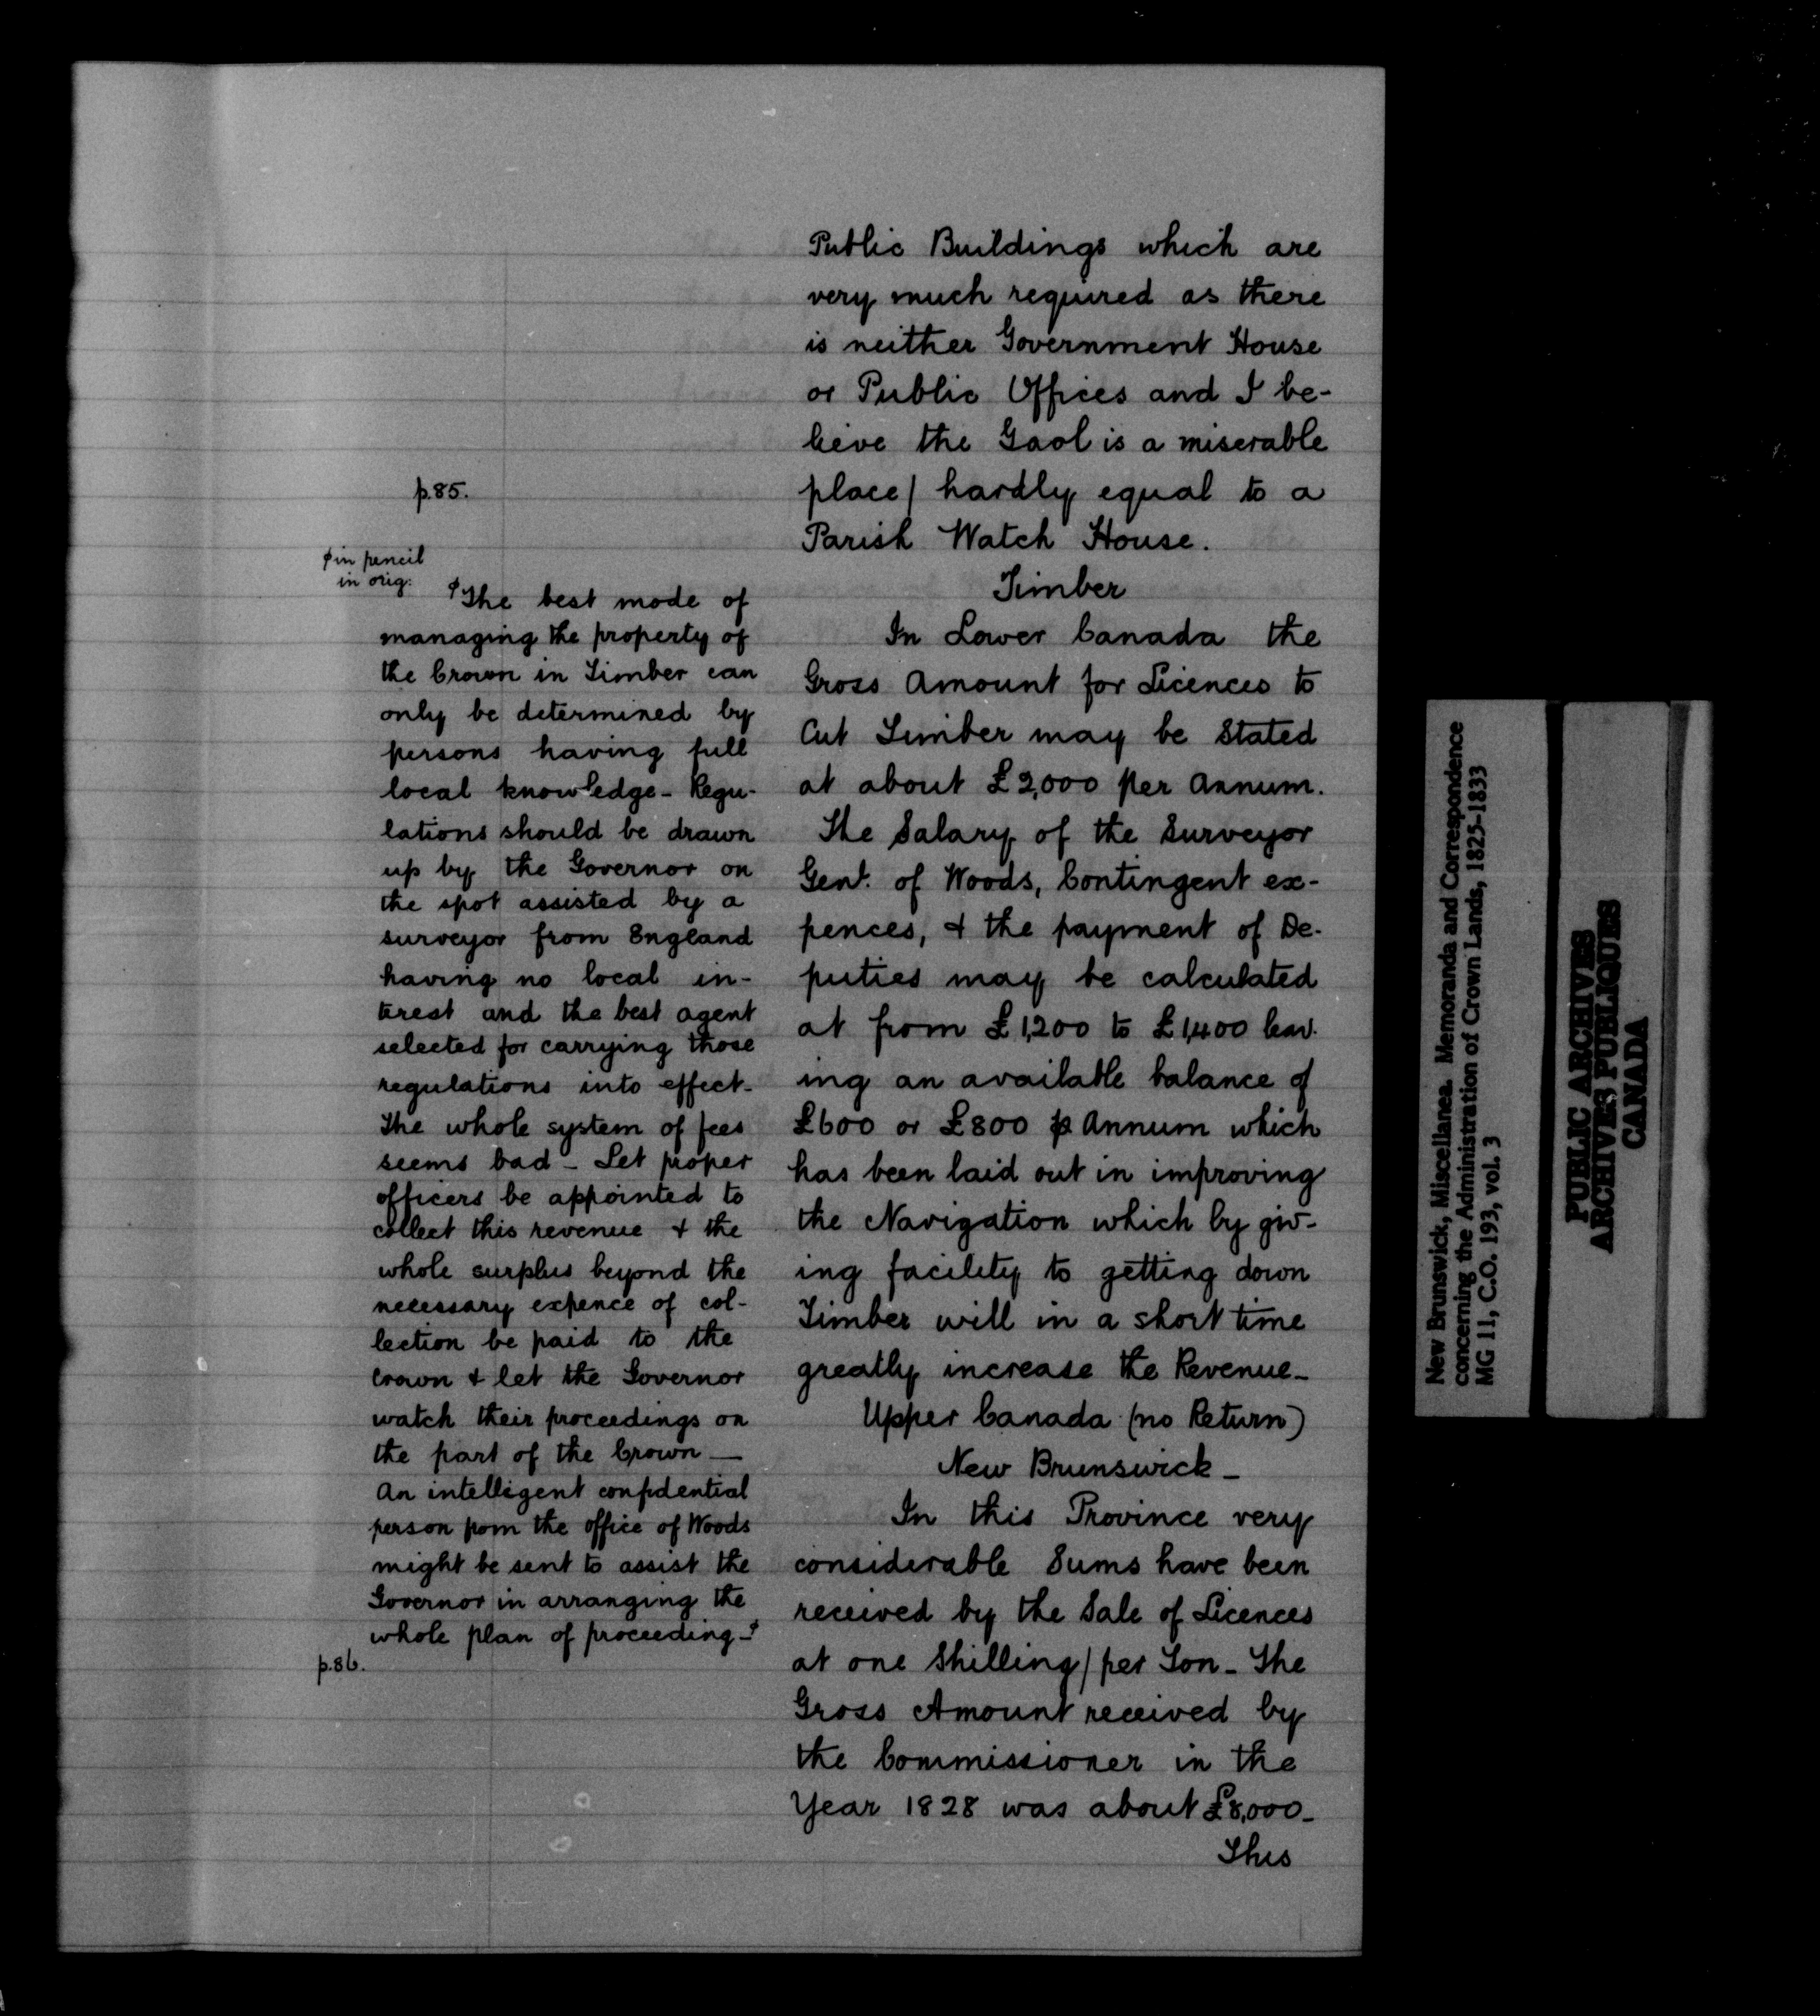 Public Buildings which are
very much required as there
is neither Government House
or Public Offices and I be-
lieve the Gaol is a miserable
place/ hardly equal to a
Parish Watch House.
Timber
In Lower Canada the
Gross Amount for Licences to
Cut Timber may be Stated
at about £2,000 per Annum.
The Salary of the Surveyor
Genl. of Woods, Contingent ex-
pences, & the payment of De-
puties may be calculated
at from £1,200 to £1,400 leav-
ing an available balance of
£600 or £800 p Annum which
has been laid out in improving
the Navigation which by giv-
ing facility to getting down
Timber will in a short time
greatly increase the Revenue_
Upper Canada (no Return)
New Brunswick_
In this Province very
considerable Sums have been
received by the Sale of Licences
at one Shilling/per Ton_ The
Gross Amount received by
the Commissioner in the
Year 1828 was about £8,000_
This
p.85.
in pencil
in orig:
The best mode of
managing the property of
the Crown in Timber can
only be determined by
persons having full
local knowledge_ Regu-
lations should be drawn
up by the Governor on
the spot assisted by a
surveyor from England
having no local in-
terest and the best agent
selected for carrying those
regulations into effect_
The whole system of fees
seems bad_ Let proper
officers be appointed to
collect this revenue & the
whole surplus beyond the
necessary expence of col-
lection be paid to the
Crown & let the Governor
watch their proceedings on
the part of the Crown—
An intelligent confidential
person from the office of Woods
might be sent to assist the
Governor in arranging the
whole plan of proceeding_
p.86.
New Brunswick, Miscellanea. Memoranda and Correspondence
concerning the Administration of Crown Lands, 1825-1833
MG 11, C.O. 193, vol. 3
PUBLIC ARCHIVES
ARCHIVES PUBLIQUES
CANADA